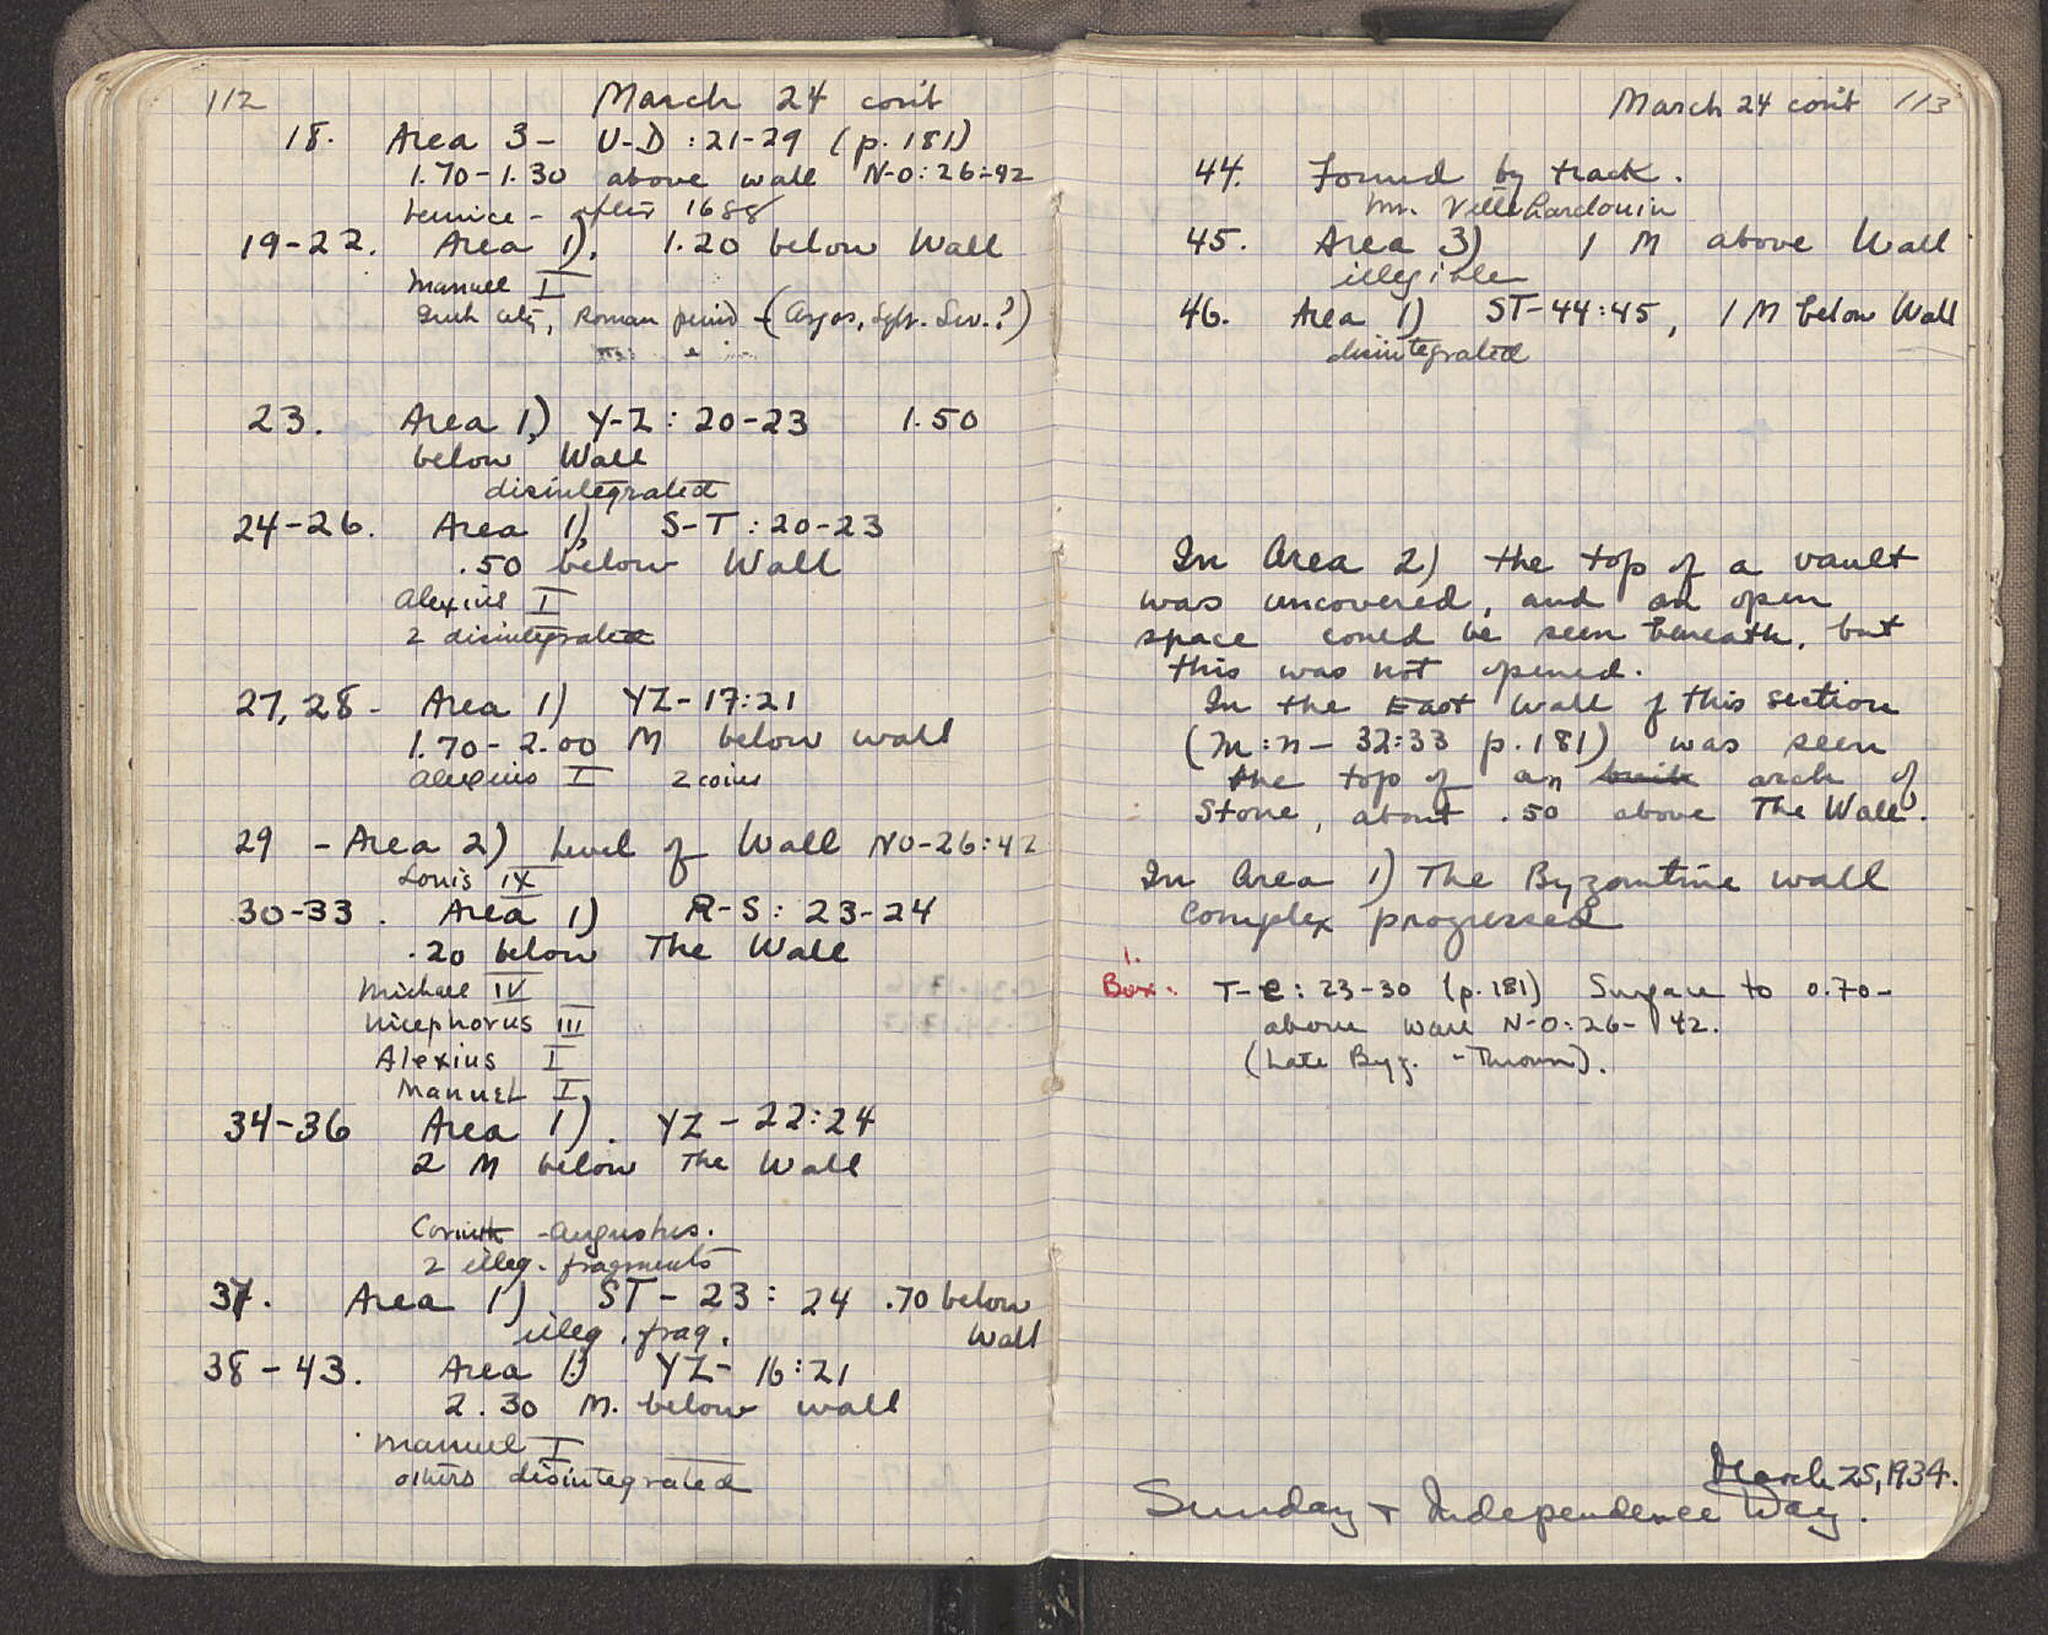 112
March 24 con't
18. Area 3 - U-D : 21-29 (p. 181)
1.70-1.30 above wall N-O: 26-42
Venice - after 1688
19-22. Area 1), 1.20 below Wall
Manuel I
Greek city, Roman period - (Argos, Sept. Sev.?)
23. Area 1,) Y-Z : 20-23 1.50
below Wall
disintegrated
24-26. Area 1), S-T : 20-23
.50 below Wall
Alexius I
2 disintegrated
27, 28 - Area 1) YZ - 17:21
1.70 - 2.00 M below wall
Alexius I 2 coins
29 - Area 2) Level of Wall NO-26:42
Louis IX
30-33. Area 1) R-S: 23-24
.20 below The Wall
Michael IV
Nicephorus III
Alexius I
Manuel I
34-36 Area 1). YZ - 22:24
2 M below The Wall
Corinth - Augustus.
2 illeg. fragments
37. Area 1) ST - 23 : 24 .70 below
Wall
illeg. frag.
38-43. Area 1) YZ - 16:21
2.30 M. below wall
Manuel I
others disintegrated
March 24 con't 113
44. Found by track.
Wm. Villehardouin
45. Area 3) 1 M above Wall
illegible
46. Area 1) ST-44:45, 1 M below Wall
disintegrated
In Area 2) the top of a vault
was uncovered, and an open
space could be seen beneath, but
this was not opened.
In the East Wall of this section
(m:n - 32:33 p. 181) was seen
the top of an arch of
Stone, about .50 above The Wall.
In Area 1) The Byzantine wall
complex progressed
1.
Box: T-e: 23-30 (p. 181) Surface to 0.70-
above wall N-O: 26-42.
(Late Byz. - Thrown).
March 25, 1934.
Sunday + Independence Day.